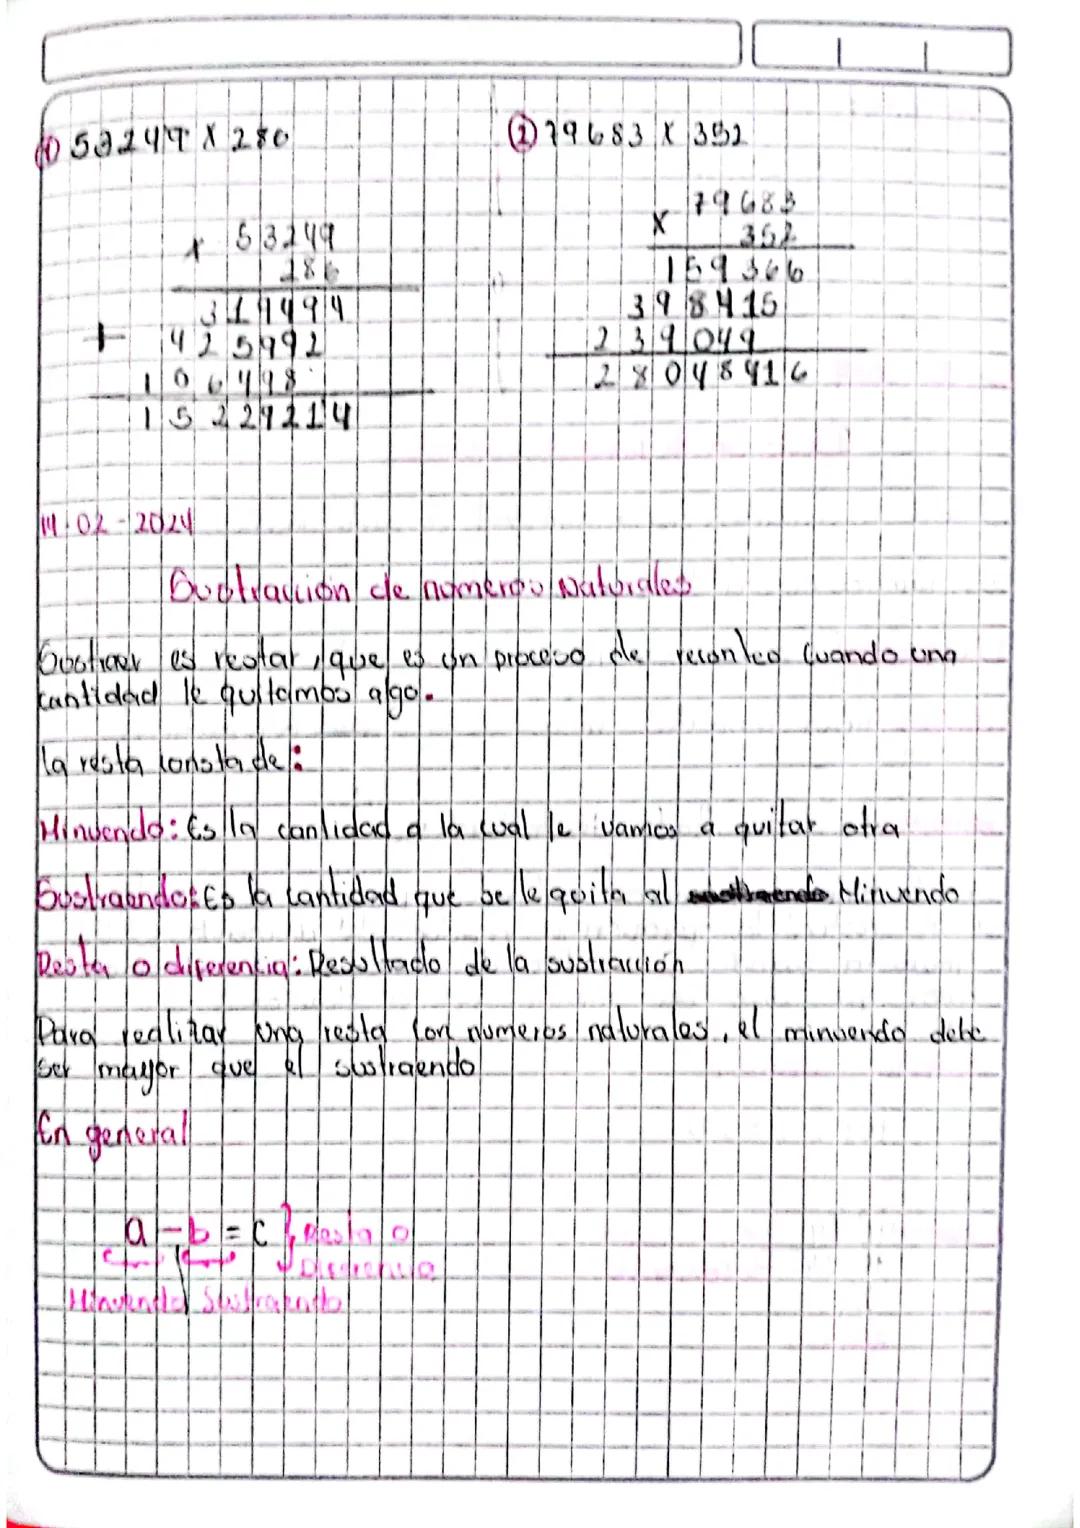 ① 53249 X 286
② 79683 X 352
x 53249
286
319494
+ 425992
106498
15229214
X 79683
352
159366
398415
239049
28048416
14-02-2024
Sustracción de numeros Naturales
Sustraer es restar, que es un proceso de reconteo cuando una
cantidad le quitambos algo.
la resta consta de:
Minuendo: Es la cantidad a la cual le vamos a quitar otra
Sustraendo: Es la cantidad que se le quita al Minuendo
Resta o diferencia: Resultado de la sustracción
Para realizar una resta con numeros naturales, el minuendo debe
ser mayor que el sustraendo
En general
a - b = c } Resta o
Diferencia
Minuendo Sustraendo